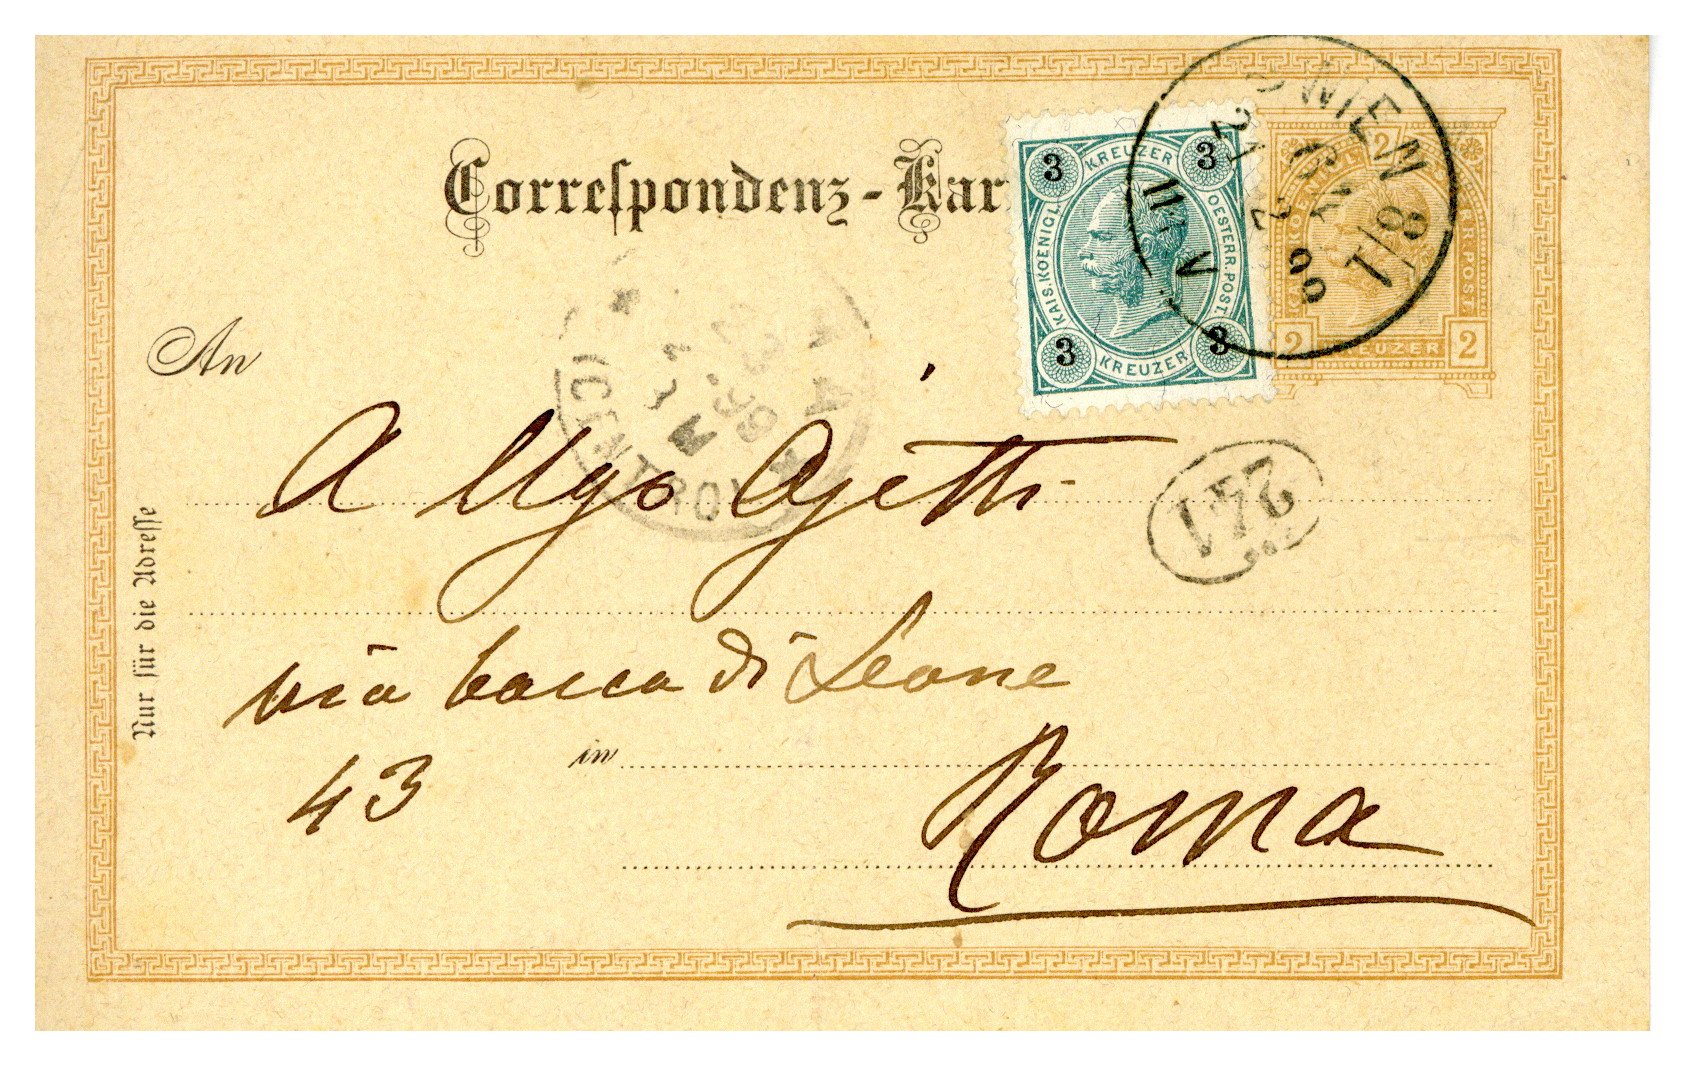 Correspondenz-Kar
3 KREUZER 3
KAIS. KOENIGL. OESTERR. POST.
3 KREUZER 3
WIEN
1/8
21
99
11 V
2
KREUZER
2 2
An
99
(CENTRO)
A Ugo Ojetti
241
Nur für die Adresse
via bocca di Leone
43 in
Roma